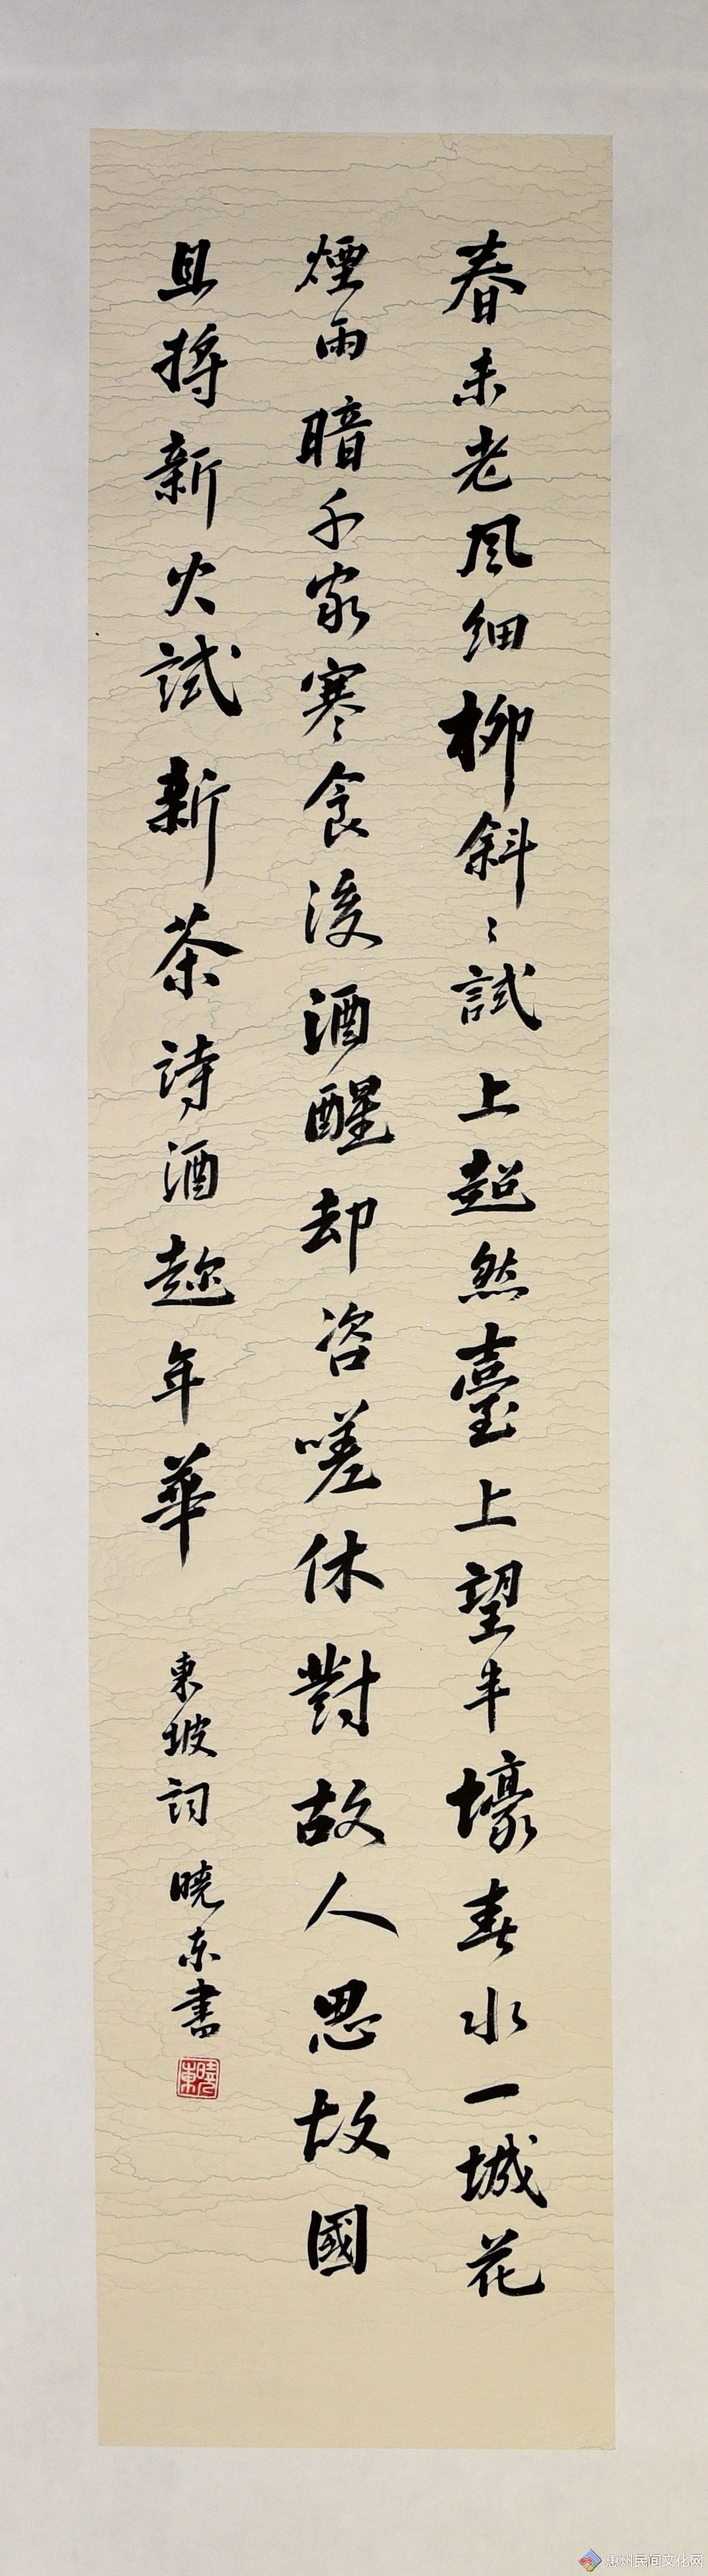 春未老風細柳斜〻試上超然臺上望半壕春水一城花
煙雨暗千家寒食後酒醒却咨嗟休對故人思故國
且將新火試新茶詩酒趂年華
東坡詞 曉东書
曉東
惠州民间文化网